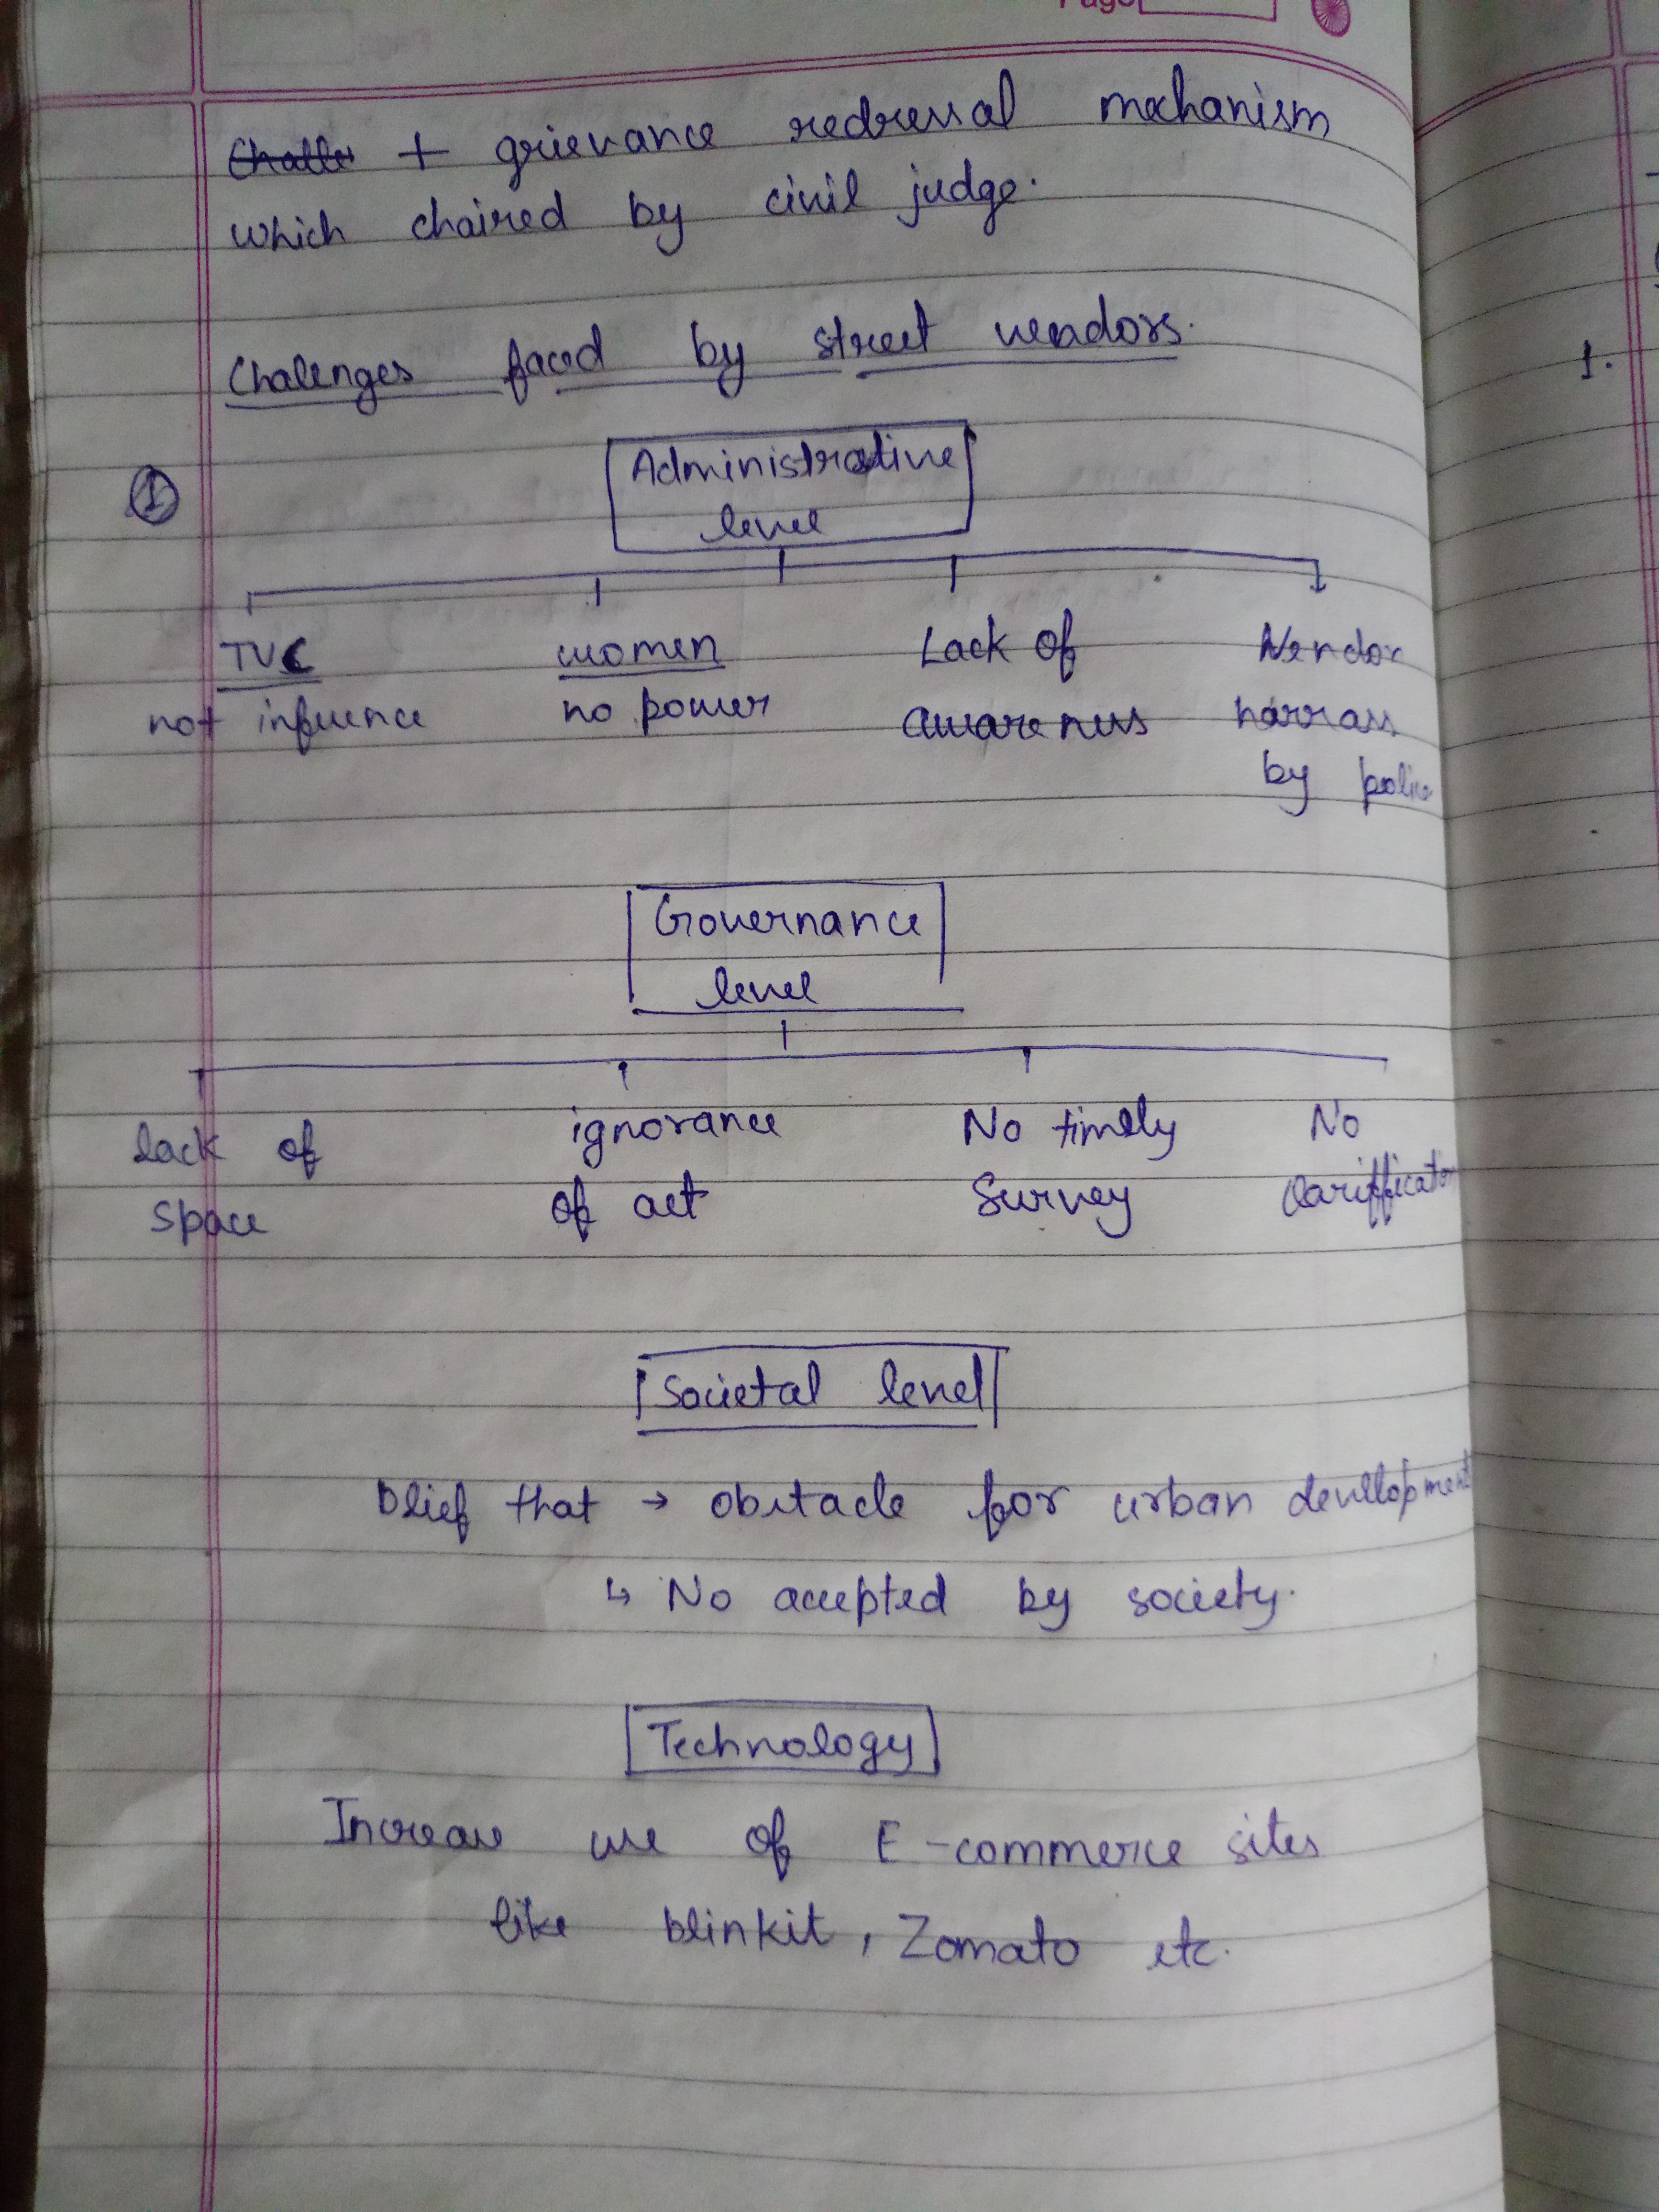 Page
+ grievance redressal mechanism
which chaired by civil judge.
Chalenges faced by street vendors.
1
Administrative
level
TVC women Lack of Vendor
not infuence no power awareness harrass
by police
Governance
level
lack of ignorance No timely No
space of act Survey clarifficaton
Societal level
Blief that → obstacle for urban devellopment
↳ No accepted by society.
Technology
Increase use of E-commerce sites
like blinkit, Zomato etc.
1.